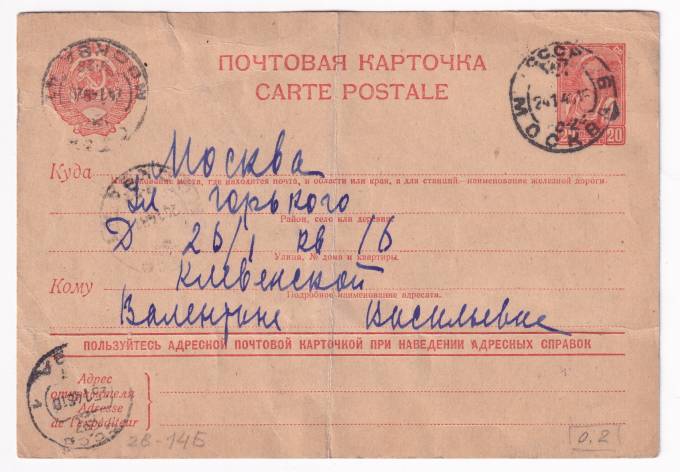 ПОЧТОВАЯ КАРТОЧКА
CARTE POSTALE
СССР
МОСКВА
20
Куда
Москва
Наименование места, где находится почта, и области или края, а для станций—наименование железной дороги
Ул Горького
Район, село или деревня
Д 26/1 кв 16
Улица, № дома и квартиры.
Клевенской
Кому
Подробное наименование адресата.
Валентине Васильевне
ПОЛЬЗУЙТЕСЬ АДРЕСНОЙ ПОЧТОВОЙ КАРТОЧКОЙ ПРИ НАВЕДЕНИИ АДРЕСНЫХ СПРАВОК
Адрес
отправителя
Adresse
de l'expéditeur
28-14Б
0.2